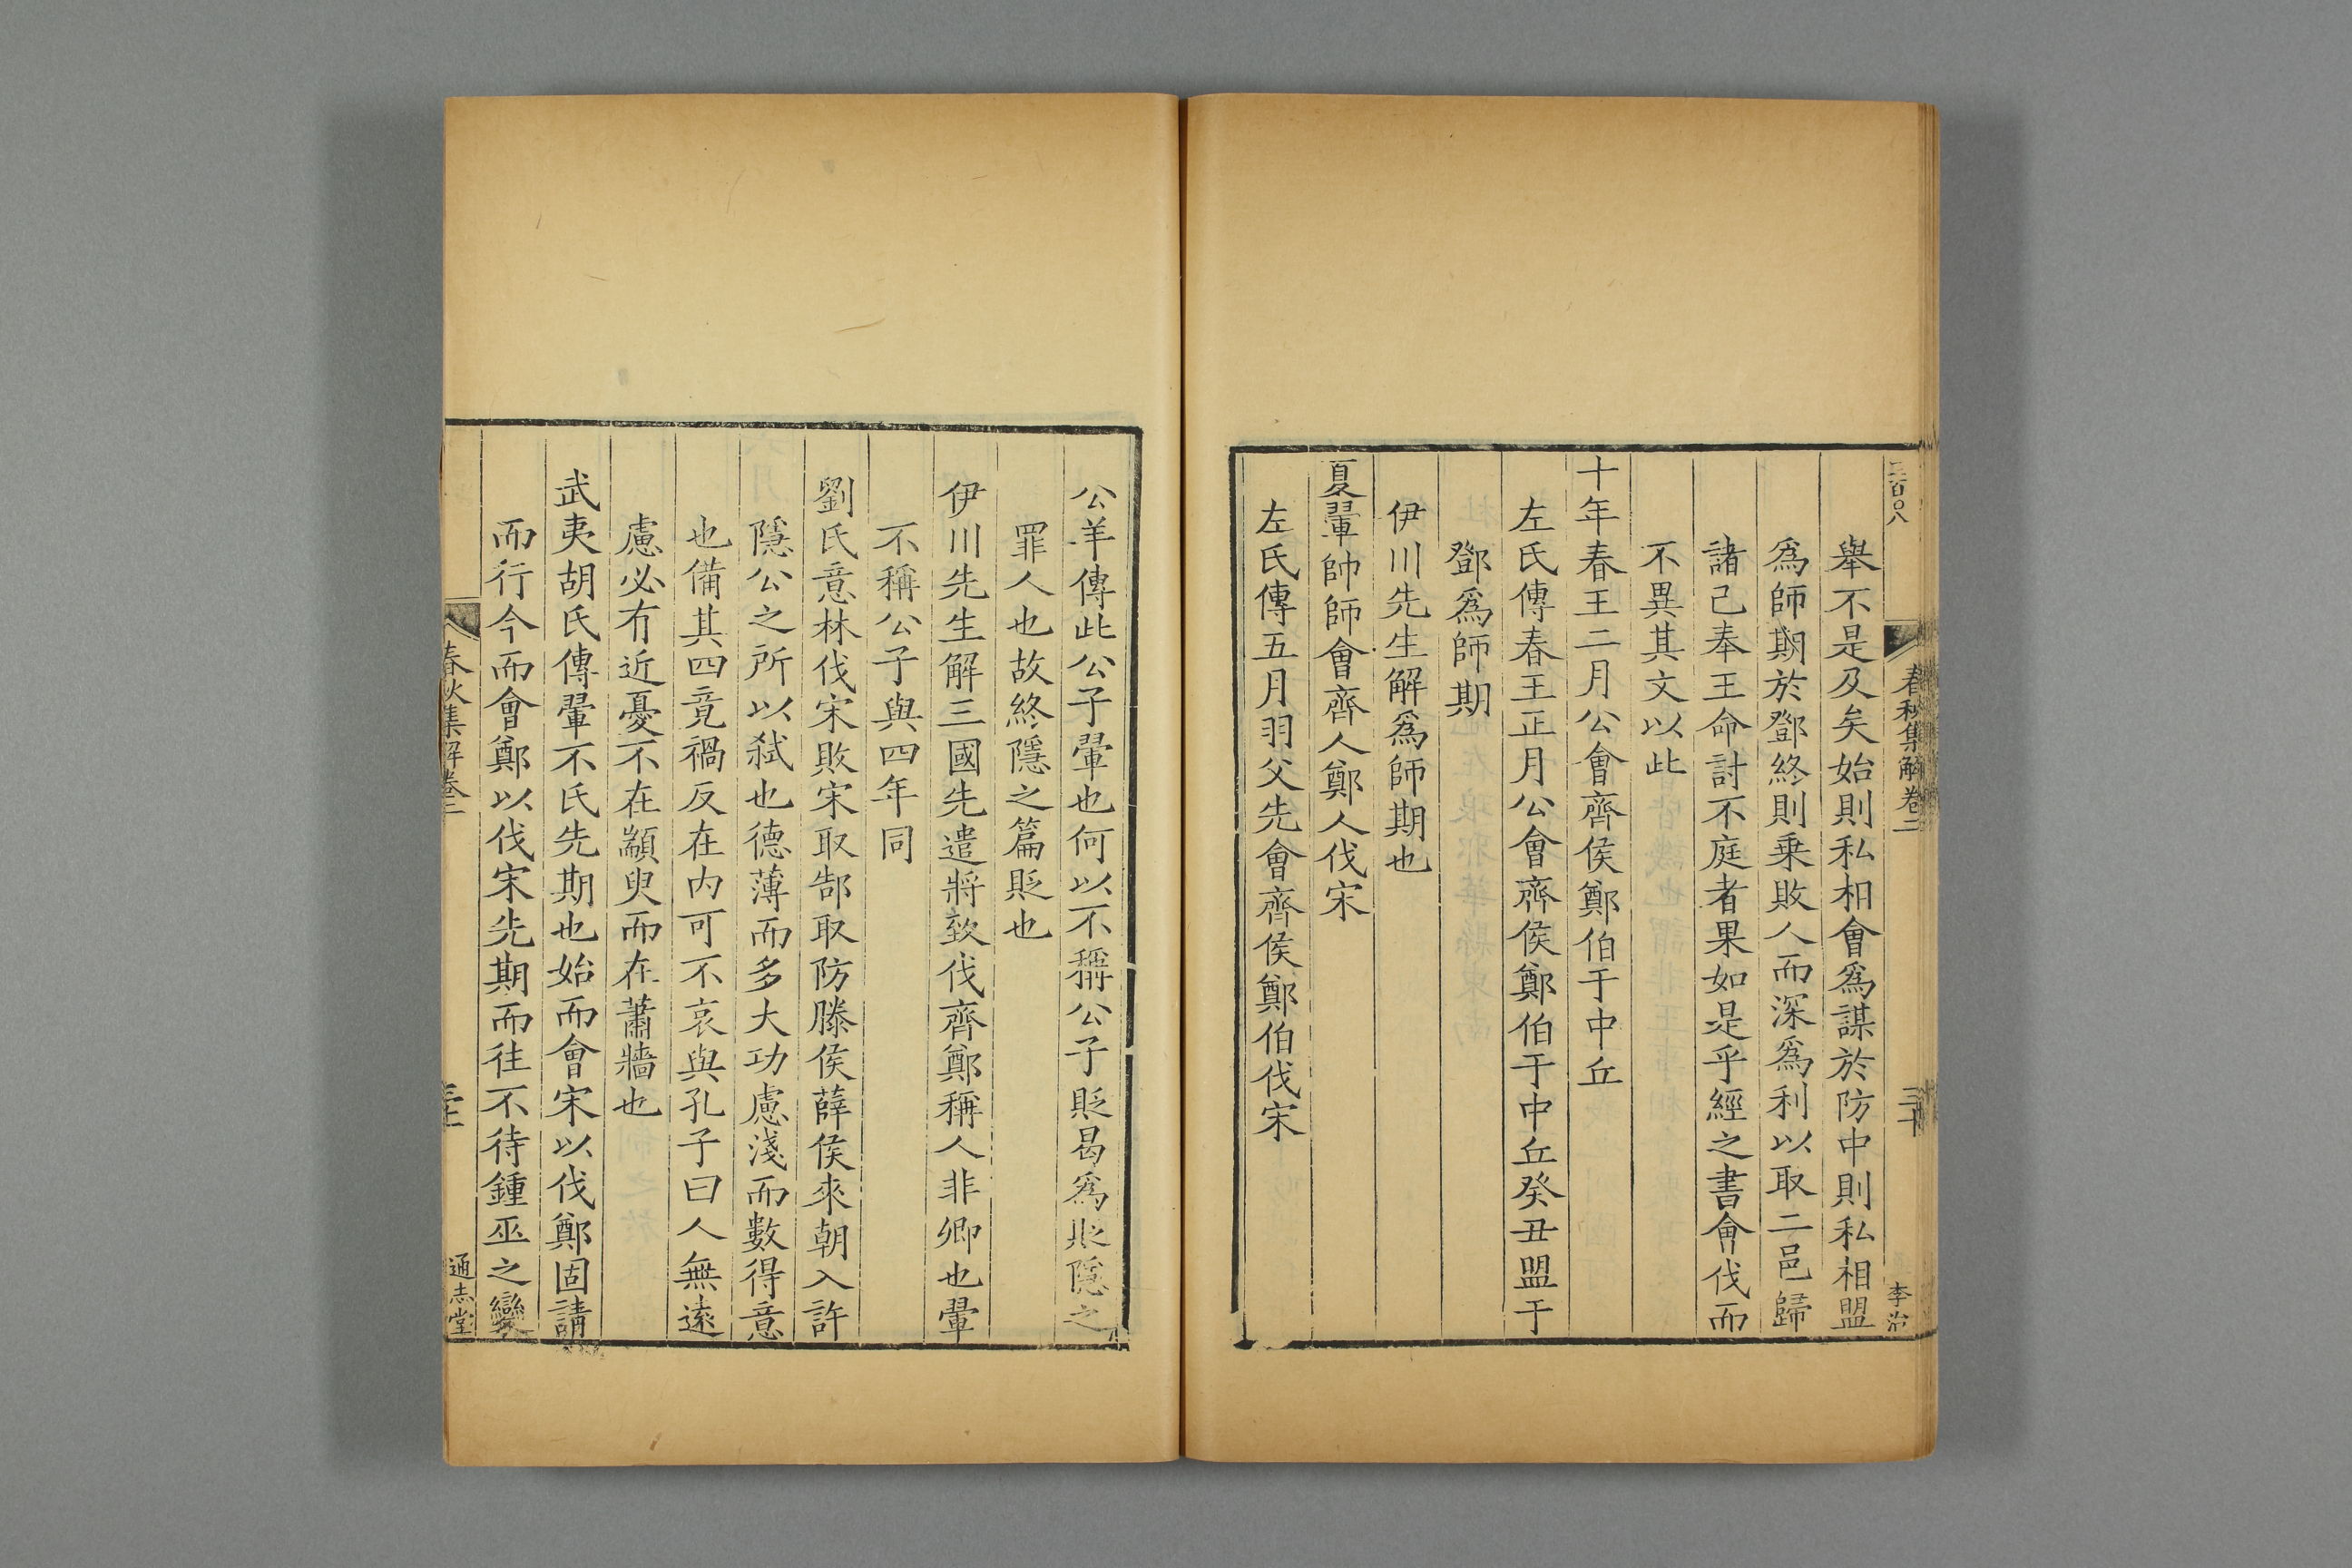 三百〇八
春秋集解卷二
三十
李治
舉不是及矣始則私相會爲謀於防中則私相盟
爲師期於鄧終則乗敗人而深爲利以取二邑歸
諸己奉王命討不庭者果如是乎經之書會伐而
不異其文以此
十年春王二月公會齊侯鄭伯于中丘
左氏傳春王正月公會齊侯鄭伯于中丘癸丑盟于
鄧爲師期
伊川先生解爲師期也
夏翬帥師會齊人鄭人伐宋
左氏傳五月羽父先會齊侯鄭伯伐宋
公羊傳此公子翬也何以不稱公子貶曷爲貶隱之
罪人也故終隱之篇貶也
伊川先生解三國先遣將致伐齊鄭稱人非卿也翬
不稱公子與四年同
劉氏意林伐宋敗宋取郜取防滕侯薛侯來朝入許
隱公之所以弑也德薄而多大功慮淺而數得意
也備其四竟禍反在内可不哀與孔子曰人無遠
慮必有近憂不在顓臾而在蕭牆也
武夷胡氏傳翬不氏先期也始而會宋以伐鄭固請
而行今而會鄭以伐宋先期而往不待鍾巫之變
春秋集解卷二
通志堂